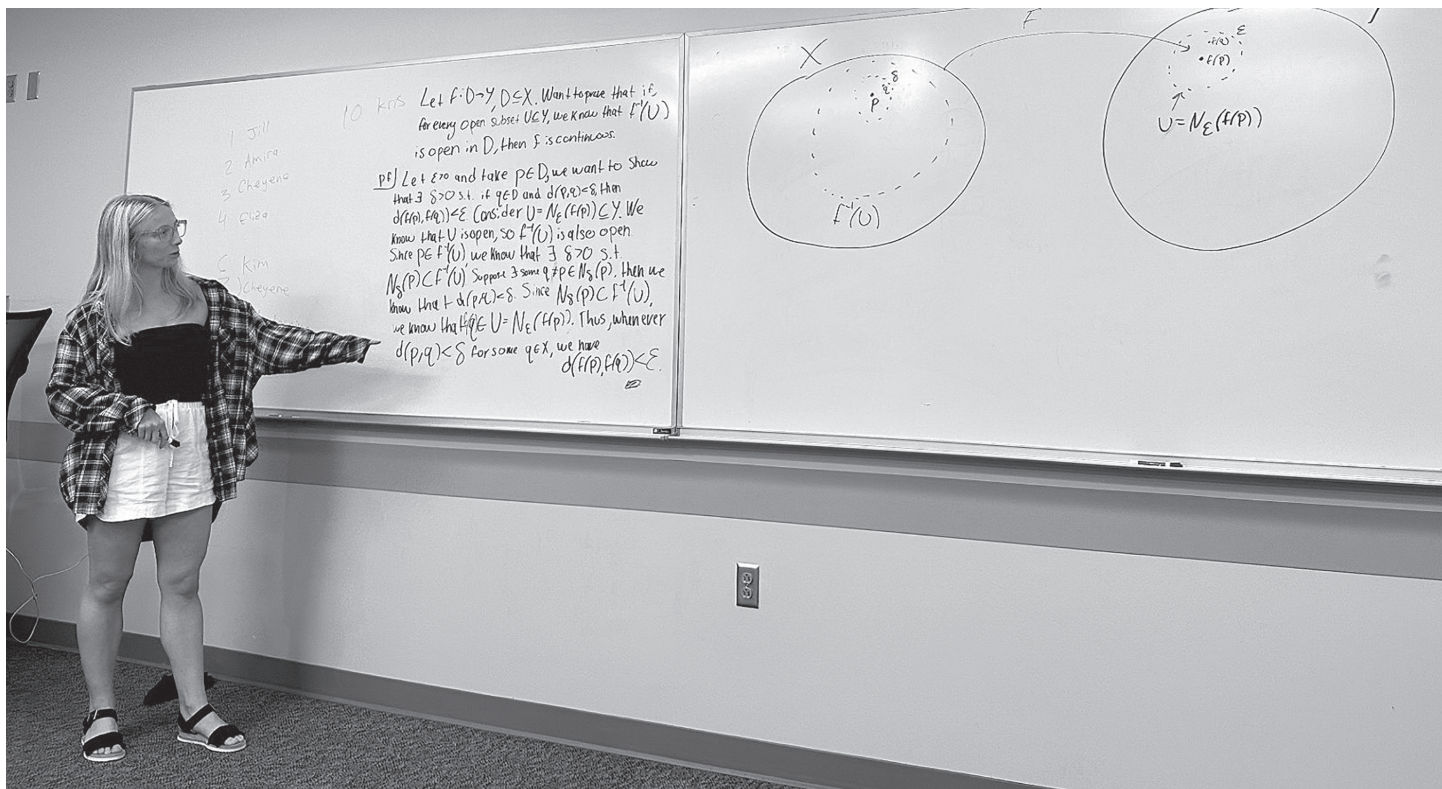 10
1 Jill
2 Amira
3 Cheyene
4 Eliza
6 Kim
Cheyene
Let f:D→Y, D⊆X. Want to prove that if,
for every open subset U⊆Y, we know that f⁻¹(U)
is open in D, then f is continuous.
pf) Let ε>0 and take p∈D, we want to show
that ∃ δ>0 s.t. if q∈D and d(p,q)<δ, then
d(f(p),f(q))<ε. Consider U=Nε(f(p))⊆Y. We
know that U is open, so f⁻¹(U) is also open.
Since p∈f⁻¹(U) we know that ∃ δ>0 s.t.
Nδ(p)⊂f⁻¹(U). Suppose ∃ some q≠p∈Nδ(p), then we
know that d(p,q)<δ. Since Nδ(p)⊂f⁻¹(U),
we know that f(q)∈U=Nε(f(p)). Thus, whenever
d(p,q)<δ for some q∈X, we have
d(f(p),f(q))<ε.
X
δ
q
p
f⁻¹(U)
f
ε
f(q)
f(p)
U=Nε(f(p))